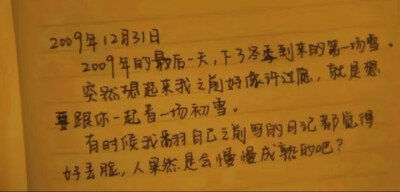 2009年12月31日
2009年的最后一天,下了冬季到来的第一场雪.
突然想起来我之前好像许过愿,就是想
要跟你一起看一场初雪.
有时候我翻羽自己之前写的日记都觉得
好丢脸,人果然是会慢慢成熟的吧?